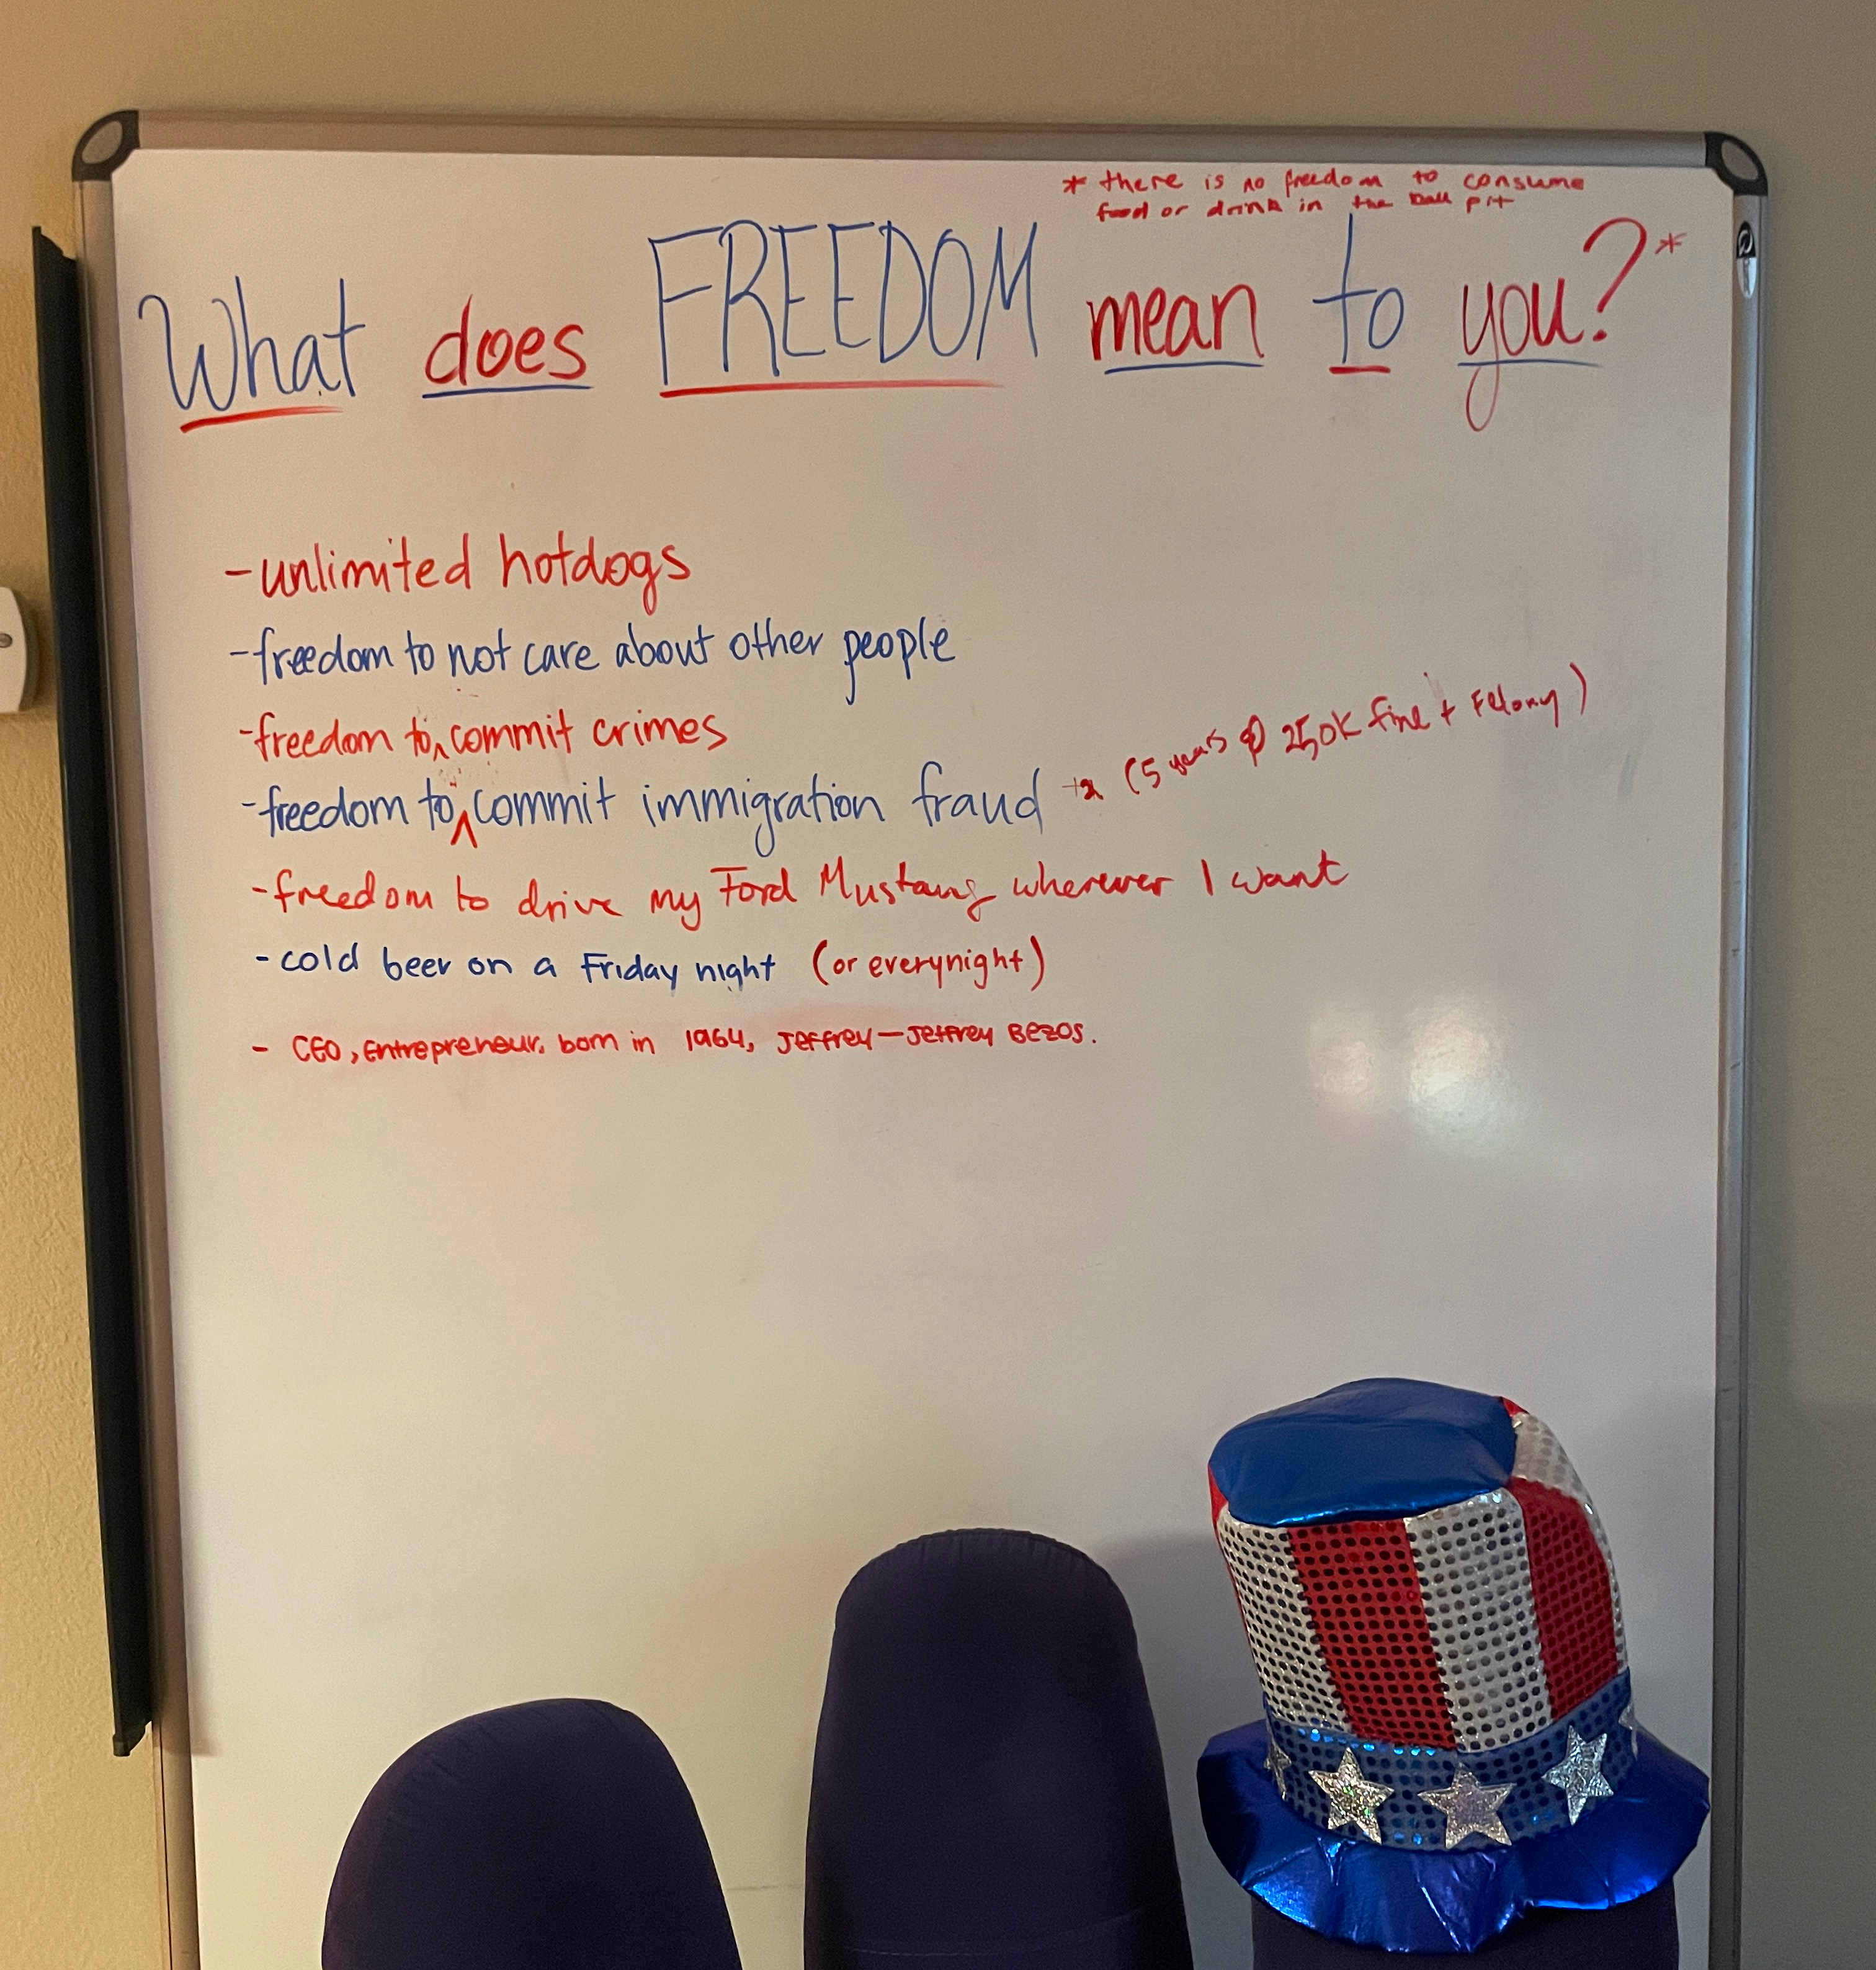 * there is no freedom to consume
food or drink in the ball pit
What does FREEDOM mean to you?*
-unlimited hotdogs
-freedom to not care about other people
-freedom to^ commit crimes
-freedom to^ commit immigration fraud (5 years 250K fine + Felony)
-freedom to drive my Ford Mustang wherever I want
-cold beer on a Friday night (or everynight)
- CEO, Entrepreneur, born in 1964, Jeffrey—Jeffrey Bezos.